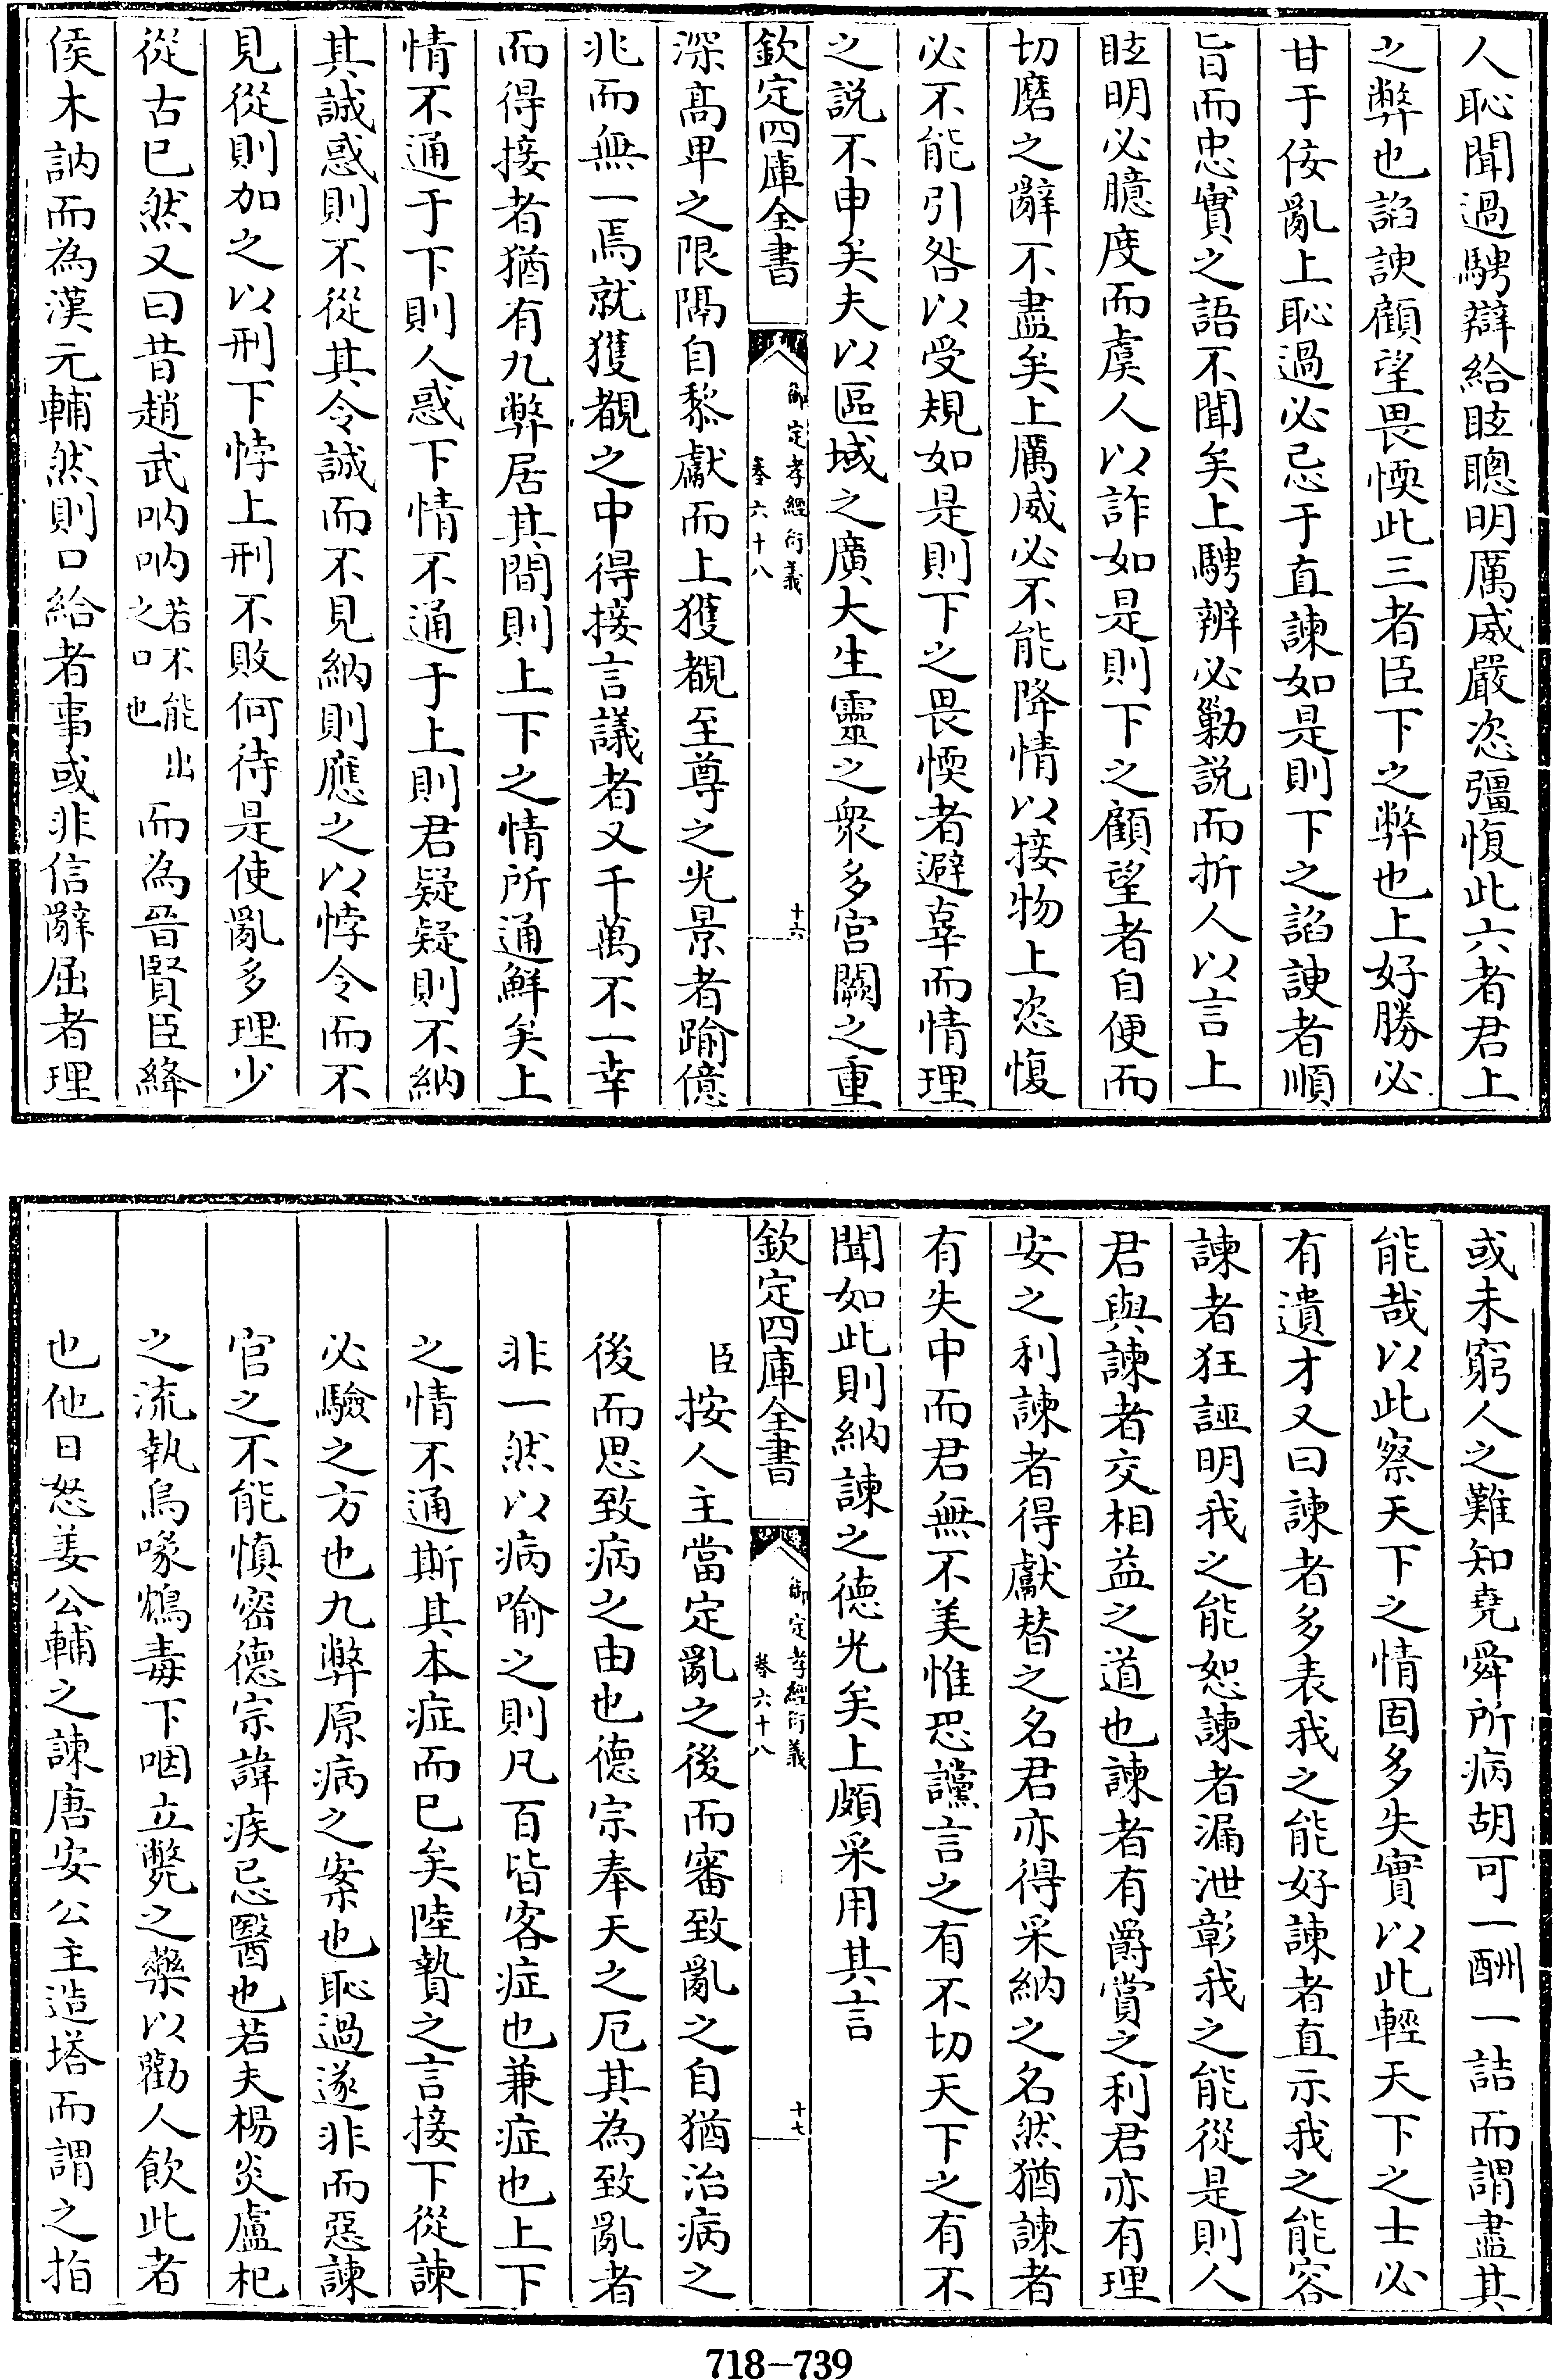 人恥聞過騁辯給眩聰明厲威嚴恣彊愎此六者君上
之弊也諂諛顧望畏愞此三者臣下之弊也上好勝必
甘于佞亂上恥過必忌于直諫如是則下之諂諛者順
旨而忠實之語不聞矣上騁辨必勦説而折人以言上
眩明必臆度而虞人以詐如是則下之顧望者自便而
切磨之辭不盡矣上厲威必不能降情以接物上恣愎
必不能引咎以受規如是則下之畏愞者避辜而情理
之説不申矣夫以區域之廣大生靈之衆多宫闕之重
欽定四庫全書
御定孝經衍義
卷六十八
十六
深髙卑之限隔自黎獻而上獲覩至尊之光景者踰億
兆而無一焉就獲覩之中得接言議者又千萬不一幸
而得接者猶有九弊居其間則上下之情所通鮮矣上
情不通于下則人惑下情不通于上則君疑疑則不納
其誠惑則不從其令誠而不見納則應之以悖令而不
見從則加之以刑下悖上刑不敗何待是使亂多理少
從古已然又曰昔趙武呐呐若不能出之口也而為晉賢臣絳
侯木訥而為漢元輔然則口給者事或非信辭屈者理
或未窮人之難知堯舜所病胡可一酬一詰而謂盡其
能哉以此察天下之情固多失實以此輕天下之士必
有遺才又曰諫者多表我之能好諫者直示我之能容
諫者狂誣明我之能恕諫者漏泄彰我之能從是則人
君與諫者交相益之道也諫者有爵賞之利君亦有理
安之利諫者得獻替之名君亦得采納之名然猶諫者
有失中而君無不美惟恐讜言之有不切天下之有不
聞如此則納諫之德光矣上頗采用其言
欽定四庫全書
御定孝經衍義
卷六十八
十七
臣按人主當定亂之後而審致亂之自猶治病之
後而思致病之由也德宗奉天之厄其為致亂者
非一然以病喻之則凡百皆客症也兼症也上下
之情不通斯其本症而已矣陸贄之言接下從諫
必驗之方也九弊原病之案也恥過遂非而惡諫
官之不能慎密德宗諱疾忌醫也若夫楊炎盧杞
之流執烏喙鴆毒下咽立斃之藥以勸人飲此者
也他日怒姜公輔之諫唐安公主造塔而謂之指
718-739